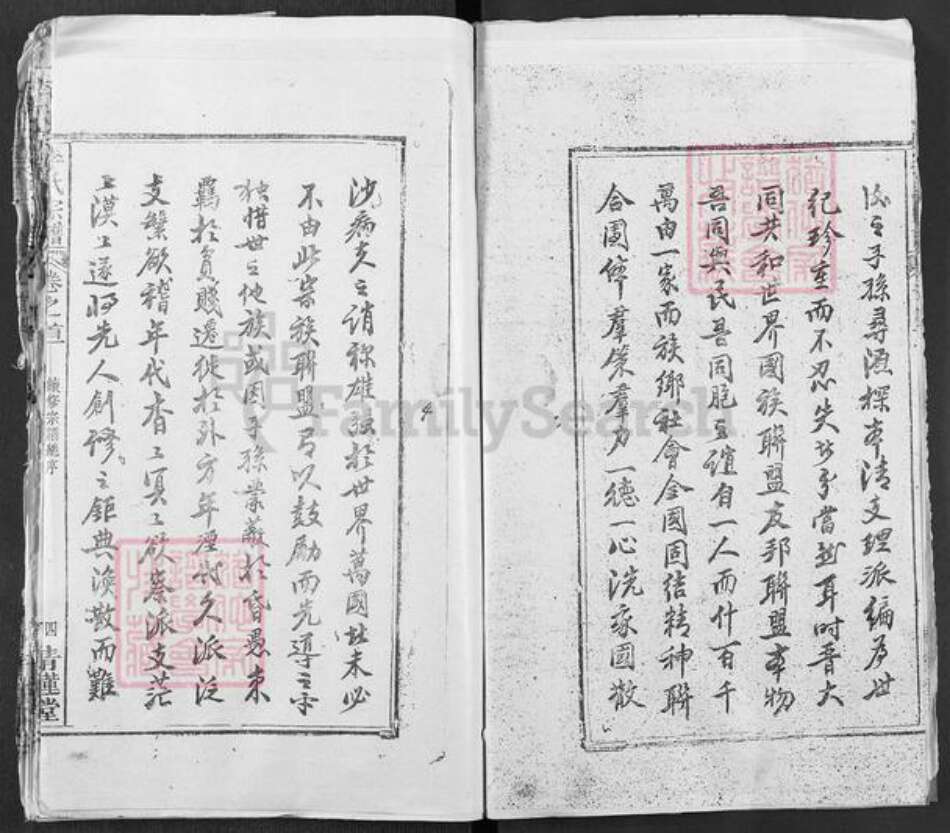 之子孫尋源探本清支理派編為世
紀珍重而不忍失此分當然耳時晉大
同共和世界國族聯盟友邦聯盟本物
吾同與民吾同胞之誼自一人而什百千
萬由一家而族鄉社會全國固結精神聯
合團体羣策羣力一德一心洗我國散
沙病夫之誚稱雄強於世界萬國此未必
不由此宗族聯盟有以鼓勵而先導之
獨惜世之他族或因子孫業蔽於昏愚未
羈於貧賤遷徙於外方年湮代久派泛
支繁欲稽年代杳工冥工欲察派支茫
工漠工遂將先人創修之鉅典渙散而難
氏宗譜
卷之首
續修宗譜總序
四
青蓮堂
FamilySearch